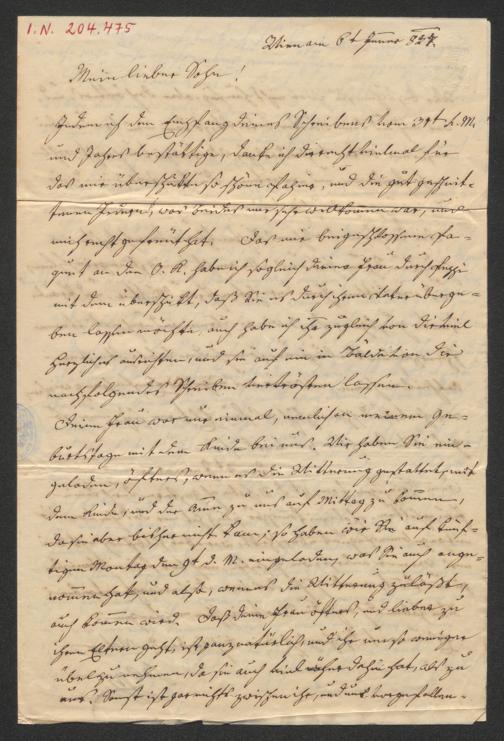 I.N. 204.475
Wien am 6t Jenner 827.
Mein lieber Sohn!
Indem ich den Empfang deines Schreibens vom 31t d. M.
und Jahrs bestättige, danke ich dir recht vielmal für
das mir überschickte so schöne, und die gut geschnit-
tenen Federn, was beides mir sehr willkommen war, und
mich recht gefreut hat. Das mir beigeschlossene Pa-
quet an den O. K. habe ich sogleich deiner Frau durch
mit dem überschickt, daß Sie es durch ihren Vater überge-
ben lassen möchte, auch habe ich ihr zugleich von dir viel
herzliches ausrichten, und sie auf ein in Bälde von dir
nachfolgendes Schreiben vertrösten lassen.
Deine Frau war nur einmal, nemlich an meinem Ge-
burtstage mit dem Kinde bei uns. Wir haben Sie ein-
geladen, öfters, wenn es die Witterung gestattet, mit
dem Kinde, und der zu uns auf Mittag zu kommen,
da sie aber bisher nicht kam; so haben wir Sie auf künf-
tigen Montag den 9t d. M. eingeladen, was Sie auch ange-
nommen hat, und also, wenn es die Witterung zuläßt,
auch kommen wird. Daß deine Frau öfters, und lieber zu
ihren Eltern geht, ist ganz natürlich, und ihr um so weniger
übel zu nehmen, da sie auch viel näher dahin hat, als zu
uns. Sonst ist gar nichts zwischen ihr, und uns vorgefallen.